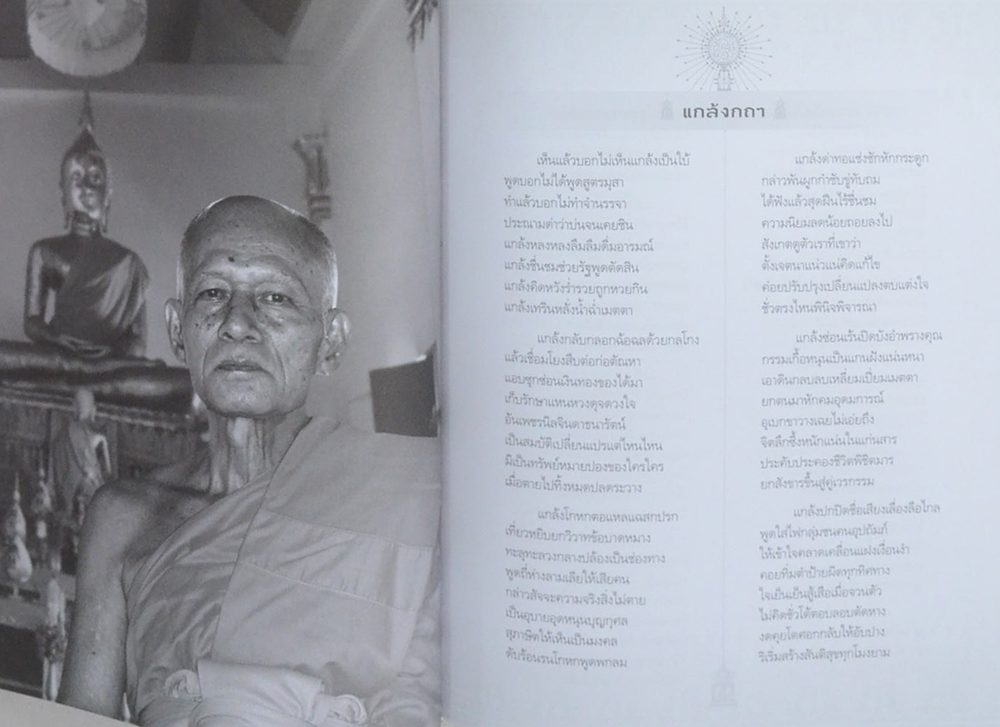 แกล้งกถา
เห็นแล้วบอกไม่เห็นแกล้งเป็นใบ้
พูดบอกไม่ได้พูดสูตรมุสา
ทำแล้วบอกไม่ทำจำนรรจา
ประณามด่าว่าบ่นจนเคยชิน
แกล้งหลงหลงลืมลืมดื่มอารมณ์
แกล้งชื่นชมช่วยรัฐพูดตัดสิน
แกล้งคิดหวังร่ำรวยถูกหวยกิน
แกล้งเทรินหลั่งน้ำฉ่ำเมตตา
แกล้งกลับกลอกฉ้อฉลด้วยกลโกง
แล้วเชื่อมโยงสืบต่อก่อตัณหา
แอบซุกซ่อนเงินทองของได้มา
เก็บรักษาแหนหวงดุจดวงใจ
อันเพชรนิลจินดาธนารัตน์
เป็นสมบัติเปลี่ยนแปรแต่ไหนไหน
มิเป็นทรัพย์หมายปองของใครใคร
เมื่อตายไปทิ้งหมดปลดระวาง
แกล้งโกหกตอแหลแฉสกปรก
เที่ยวหยิบยกวิวาทข้อบาดหมาง
ทะลุทะลวงกลางปล้องเป็นช่องทาง
พูดถี่ห่างลามเลียให้เสียคน
กล่าวสัจจะความจริงสิ่งไม่ตาย
เป็นอุบายอุดหนุนบุญกุศล
สุภาษิตให้เห็นเป็นมงคล
ดับร้อนรนโกหกพูดพกลม
แกล้งด่าทอแช่งชักหักกระดูก
กล่าวพันผูกกำชับขู่ทับถม
ได้ฟังแล้วสุดฝืนไร้ชื่นชม
ความนิยมลดน้อยถอยลงไป
สังเกตดูตัวเราที่เขาว่า
ตั้งเจตนาแน่วแน่คิดแก้ไข
ค่อยปรับปรุงเปลี่ยนแปลงตบแต่งใจ
ชั่วตรงไหนพินิจพิจารณา
แกล้งซ่อนเร้นปิดบังอำพรางคุณ
กรรมเกื้อหนุนเป็นแกนฝังแน่นหนา
เอาดินกลบลบเหลี่ยมเปี่ยมเมตตา
ยกตนมาหักคมอุดมการณ์
อุเบกขาวางเฉยไม่เอ่ยถึง
จิตลึกซึ้งหนักแน่นในแก่นสาร
ประคับประคองชีวิตพิชิตมาร
ยกสังขารขึ้นสู่คู่เวรกรรม
แกล้งปกปิดชื่อเสียงเลื่องลือไกล
พูดใส่ไฟกลุ่มชนคนอุปถัมภ์
ให้เข้าใจคลาดเคลื่อนแฝงเงื่อนงำ
คอยทิ่มตำป้ายผิดทุกทิศทาง
ใจเย็นเย็นสู้เสือเมื่อจวนตัว
ไม่คิดชั่วโต้ตอบลอบตัดหาง
งดคุยโตศอกกลับให้อับปาง
ริเริ่มสร้างสันติสุขทุกโมงยาม